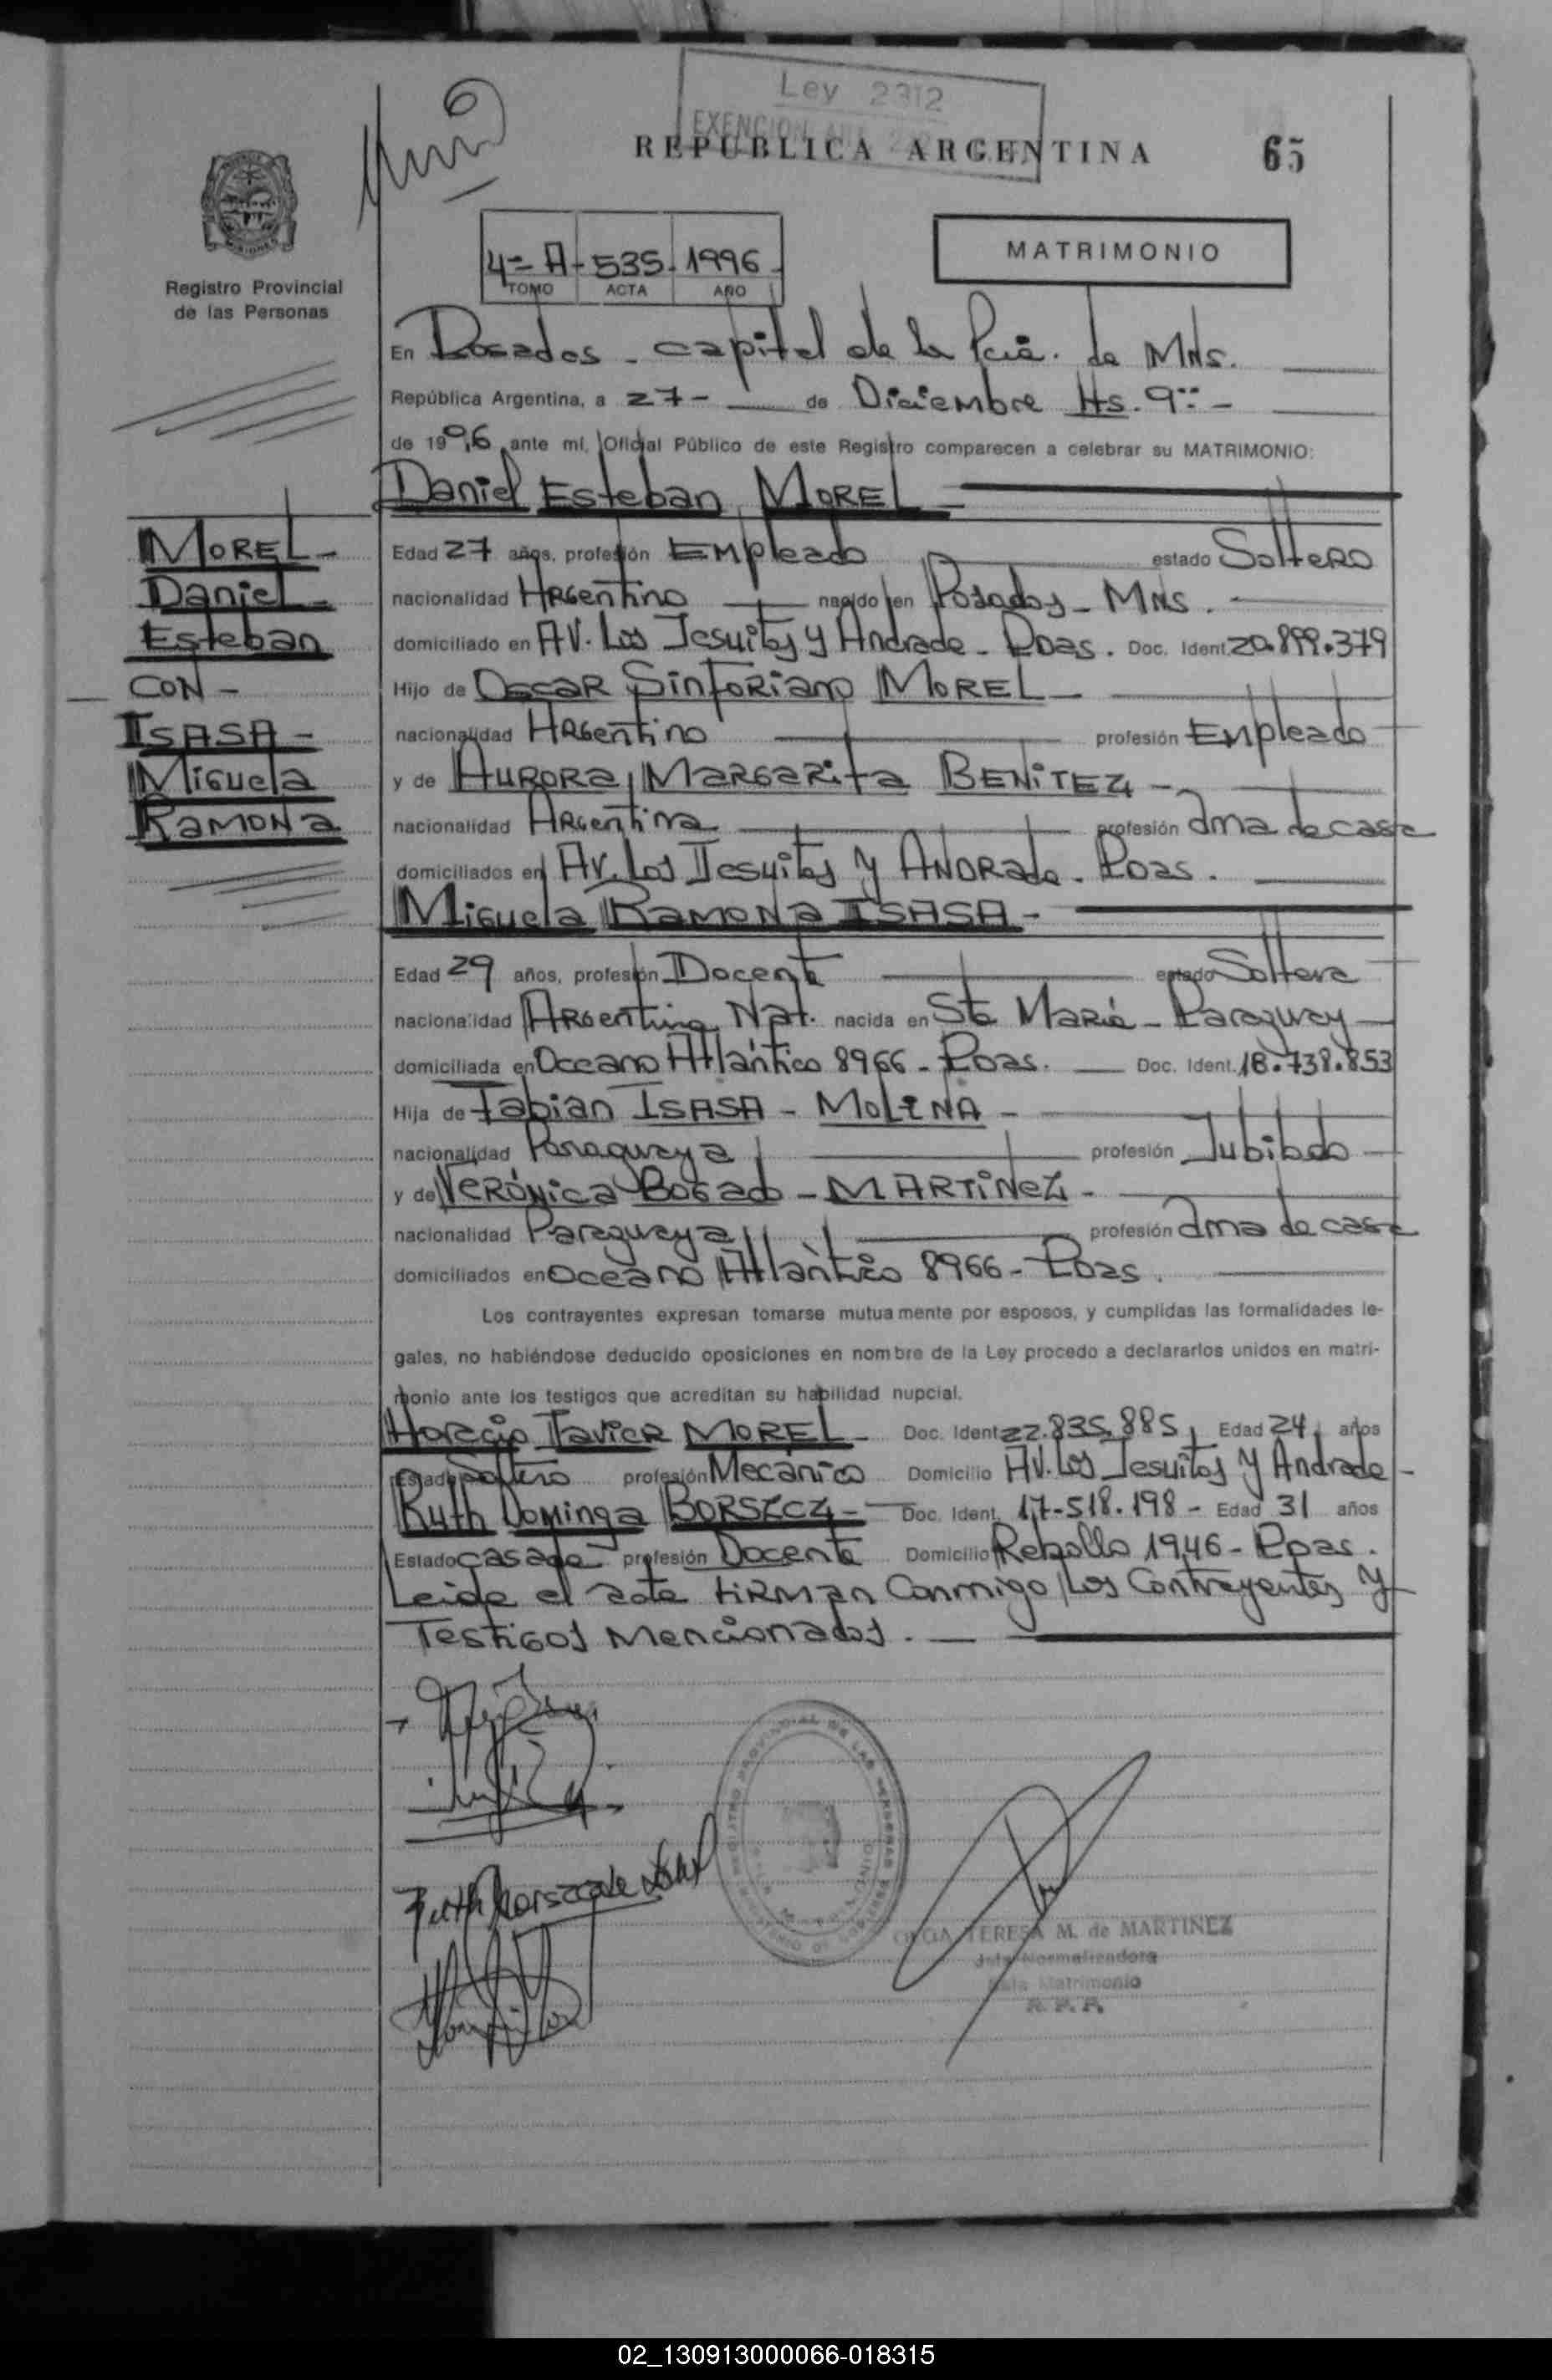 Ley 2312
EXENCION
REPUBLICA ARGENTINA 65
4º- A - 535 - 1996 -
TOMO ACTA AÑO
MATRIMONIO
Registro Provincial
de las Personas
En Posadas - capital de la Pcia. de Mns.
República Argentina, a 27 - de Diciembre Hs. 9:: -
de 1996, ante mí, Oficial Público de este Registro comparecen a celebrar su MATRIMONIO:
Daniel Esteban MOREL
MOREL -
Daniel -
Esteban
CON -
ISASA -
Miguela
Ramona
Edad 27 años, profesión Empleado estado Soltero
nacionalidad Argentino nacido en Posadas - Mns.
domiciliado en AV. Los Jesuitas y Andrade - Pdas. Doc. Ident. 20.899.379
Hijo de Oscar Sinforiano MOREL -
nacionalidad Argentino profesión Empleado
y de Aurora Margarita BENiTEZ -
nacionalidad Argentina profesión ama de casa
domiciliados en Av. Los Jesuitas y Andrade - Pdas.
Miguela Ramona ISASA -
Edad 29 años, profesión Docente estado Soltera
nacionalidad Argentina Nat. nacida en Sta María - Paraguay
domiciliada en Oceano Atlántico 8966 - Pdas. Doc. Ident. 18.738.853
Hija de Fabian ISASA - MOLINA -
nacionalidad Paraguaya profesión Jubilado
y de Verónica Bogado - MARTiNeZ -
nacionalidad Paraguaya profesión ama de casa
domiciliados en Oceano Atlántico 8966 - Pdas.
Los contrayentes expresan tomarse mutuamente por esposos, y cumplidas las formalidades le-
gales, no habiéndose deducido oposiciones en nombre de la Ley procedo a declararlos unidos en matri-
monio ante los testigos que acreditan su habilidad nupcial.
Horacio Javier MOREL - Doc. Ident. 22.835.885, Edad 24, años
Estado Soltero profesión Mecánico Domicilio AV. Los Jesuitas y Andrade -
Ruth Dominga BORSZCZ - Doc. Ident. 17-518.198 - Edad 31 años
Estado casada profesión Docente Domicilio Rebollo 1946 - Pdas.
Leida el acta firman Conmigo los Contrayentes y
Testigos Mencionados.
REGISTRO PROVINCIAL DE LAS PERSONAS
OLGA TERESA M. de MARTINEZ
Jefa Normalizadora
Sala Matrimonio
R. P. P.
02_130913000066-018315